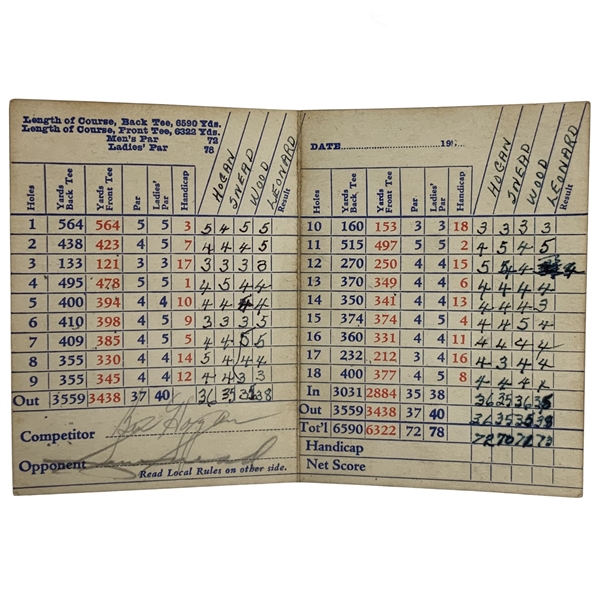 Length of Course, Back Tee, 6590 Yds.
Length of Course, Front Tee, 6322 Yds.
Men's Par 72
Ladies' Par 78
Holes Yards Back Tee Yards Front Tee Par Ladies' Par Handicap HOGAN SNEAD WOOD LEONARD Result
1 564 564 5 5 3 5 4 5 5
2 438 423 4 5 7 4 4 4 5
3 133 121 3 3 17 3 3 3 3
4 495 478 5 5 1 4 5 4 4
5 400 394 4 4 10 4 4 4 4
6 410 398 4 5 9 3 3 3 5
7 409 385 4 5 5 4 4 5 5
8 355 330 4 4 14 5 4 4 4
9 355 345 4 4 12 4 4 3 3
Out 3559 3438 37 40 36 35 35 38
Competitor Ben Hogan
Opponent Sam Snead
Read Local Rules on other side.
DATE 19
Holes Yards Back Tee Yards Front Tee Par Ladies' Par Handicap HOGAN SNEAD WOOD LEONARD Result
10 160 153 3 3 18 3 3 3 3
11 515 497 5 5 2 4 5 4 5
12 270 250 4 4 15 5 4 4
13 370 349 4 4 6 4 4 4 4
14 350 341 4 4 13 4 4 4 3
15 374 374 4 5 4 4 4 5 4
16 360 331 4 4 11 4 4 4 4
17 232 212 3 4 16 4 3 4 4
18 400 377 4 5 8 4 4 4 4
In 3031 2884 35 38 36 35 36 35
Out 3559 3438 37 40 36 35 35 38
Tot'l 6590 6322 72 78 72 70 71 73
Handicap
Net Score